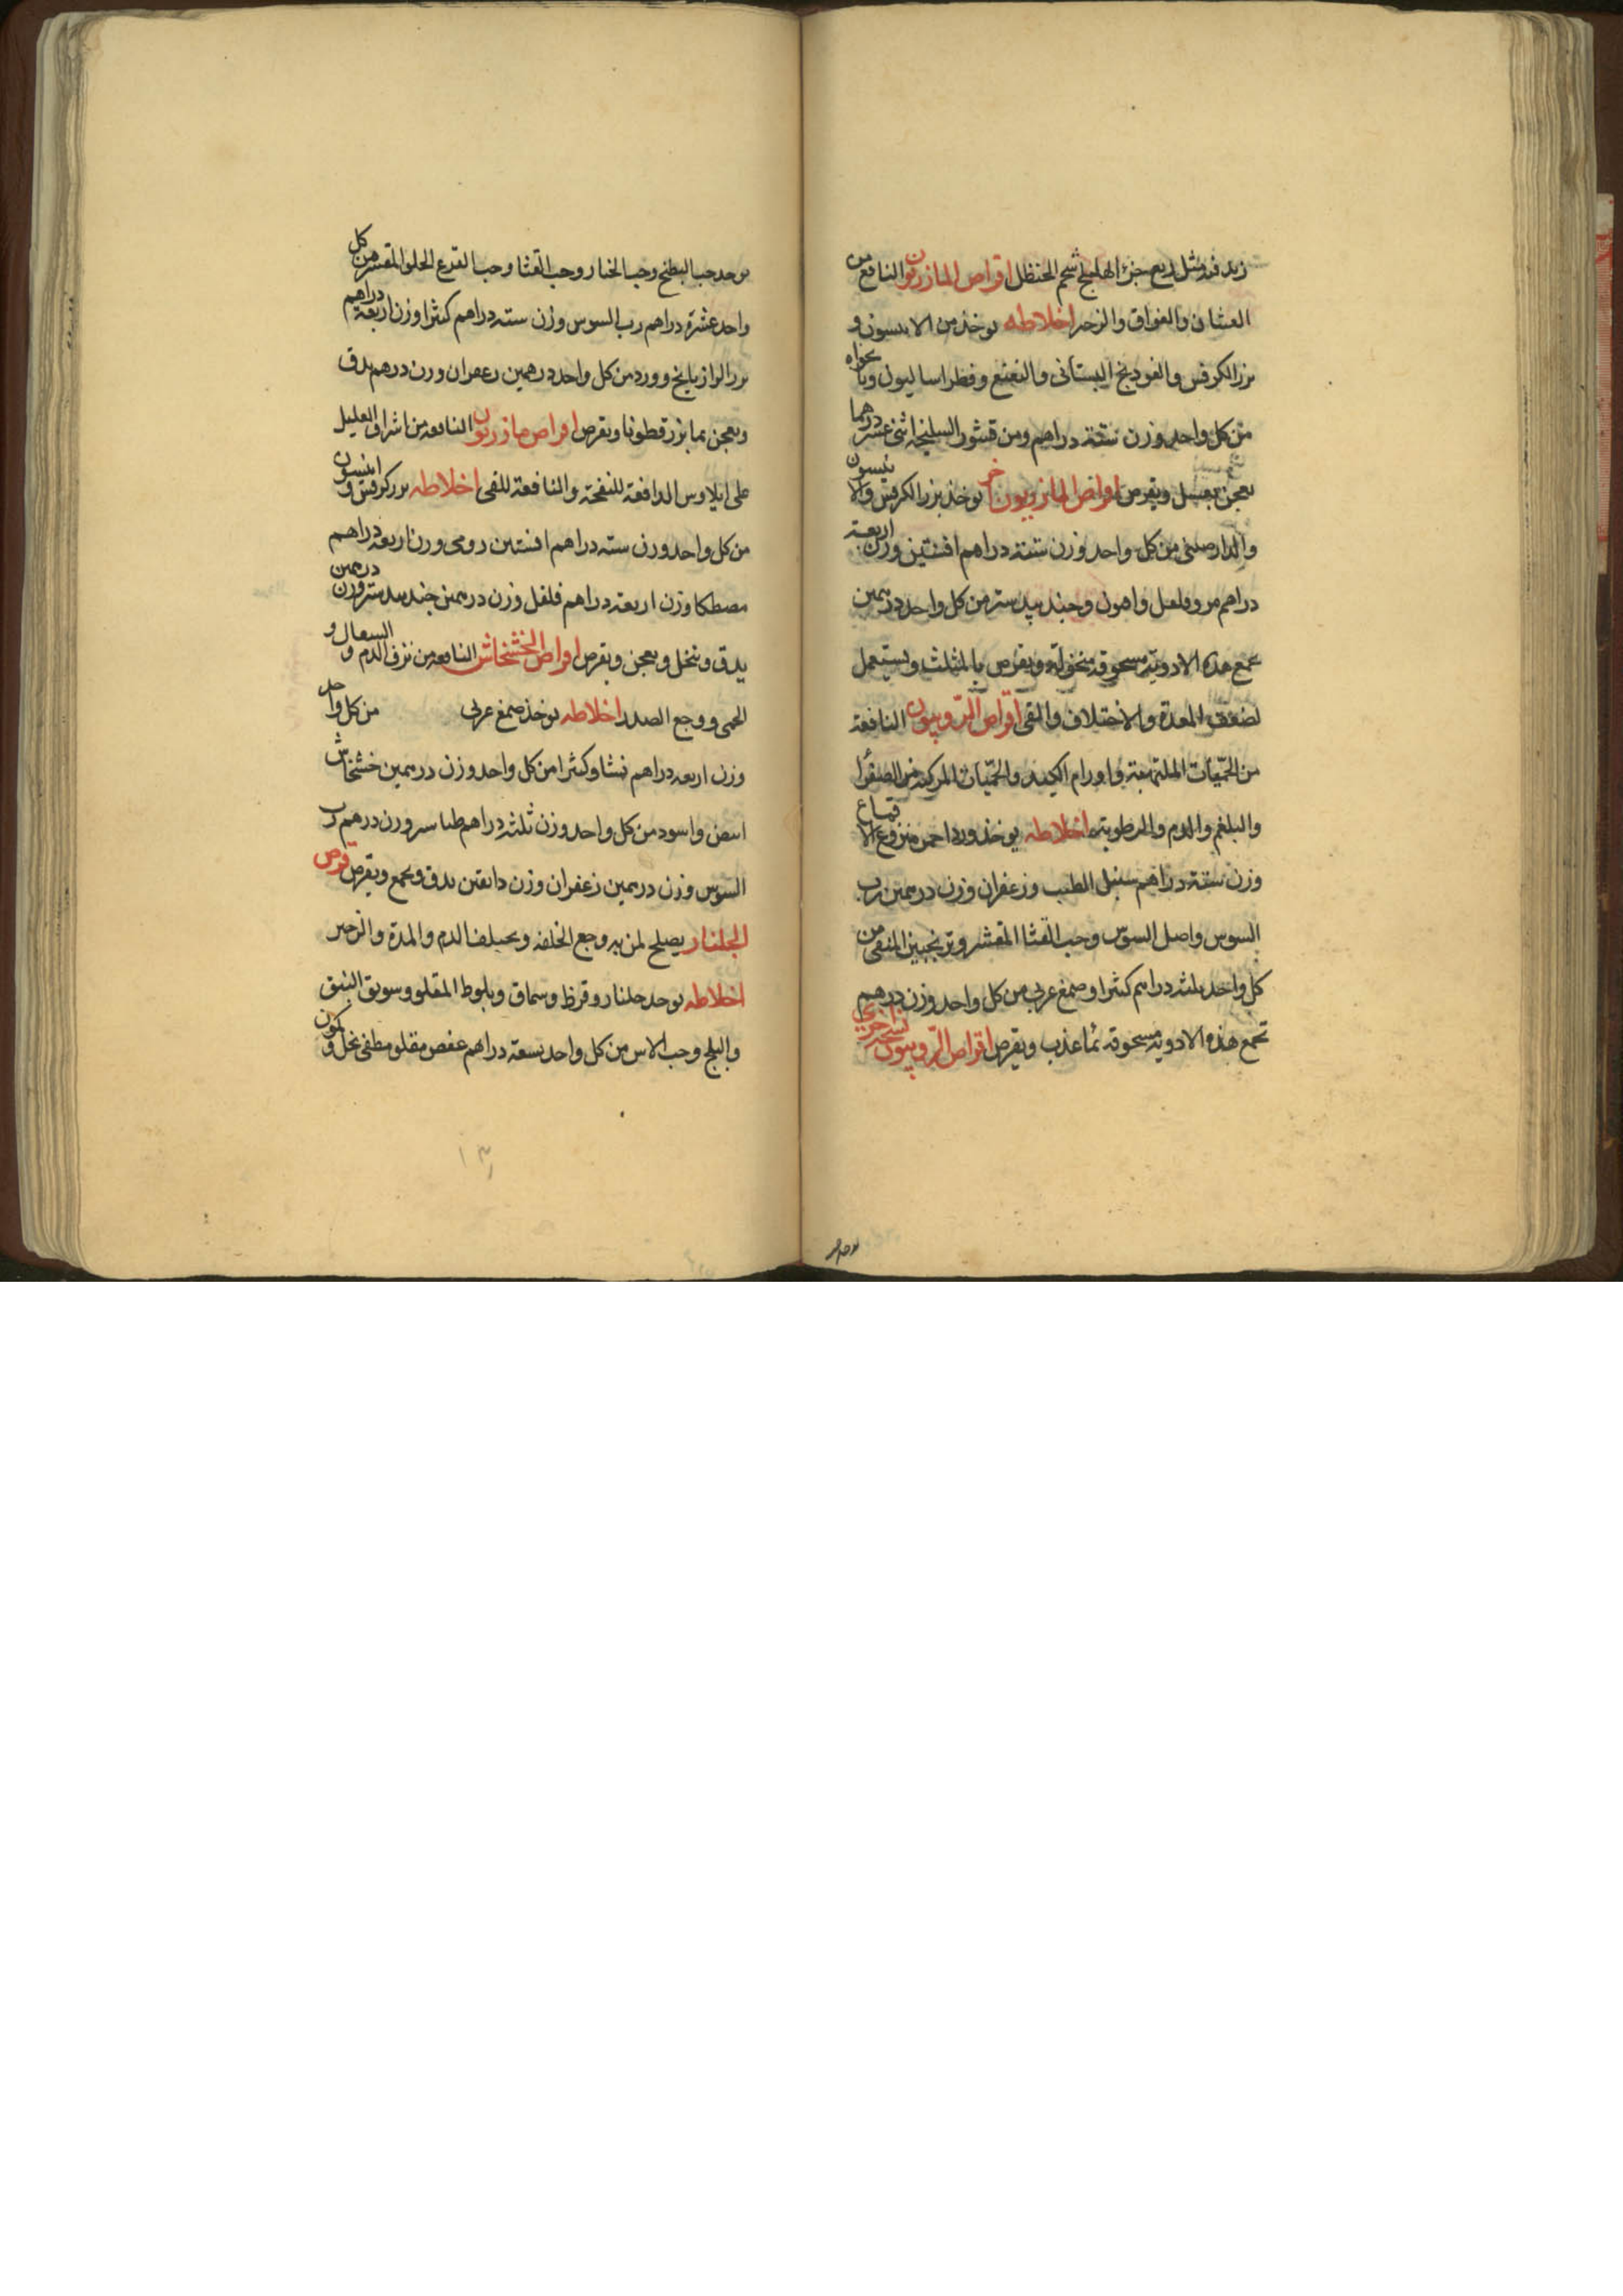 زيد فيه مثل ربع جزء الهليلج شحم الحنظل اقراص المازريون النافع من
الغثيان والفواق والزحير اخلاطه يوخذ من الانيسون و
بزر الكرفس والفودنج البستانى والنعنع وفطراساليون ونانخواه
من كل واحد وزن ستة دراهم ومن قشور السليخه اثنى عشر درهما
يعجن بعسل ويقرص اقراص المازريون اخر يوخذ بزر الكرفس والانيسون
والدارصينى من كل واحد وزن ستة دراهم افسنتين وزن اربعة
دراهم مر وفلفل وافيون وجندبيدستر من كل واحد درهمين
يجمع هذه الادوية مسحوقة منخولة ويقرص بالمثلث ويستعمل
لضعف المعدة والاختلاف والقى اقراص النافعة
من الحميات الملتهبة واورام الكبد والحميات المركبة من الصفرا
والبلغم والدم والرطوبة اخلاطه يوخذ ورد احمر منزوع الاقماع
وزن ستة دراهم سنبل الطيب وزعفران وزن درهمين رب
السوس واصل السوس وحب القثا المقشر وترنجبين المنقى من
كل واحد ثلثه دراهم كثيرا وصمغ عربى من كل واحد وزن درهم
تجمع هذه الادوية مسحوقة بماء عذب ويقرص اقراص نسخه اخرى
يوخذ حب
يوخذ حب البطيخ وحب الخيار وحب القثا وحب القرع الحلو المقشر من كل
واحد عشرة دراهم رب السوس وزن سته دراهم كثيرا وزن اربعة دراهم
بزر الرازيانج وورد من كل واحد درهمين زعفران وزن درهم يدق
ويعجن بماء بزر قطونا ويقرص اقراص مازريون النافعه من اشراف العليل
على ايلاوس الدافعة للنفخة والنافعة للقى اخلاطه بزر كرفس وانيسون
من كل واحد وزن سته دراهم افسنتين رومى وزن اربعه دراهم
مصطكا وزن اربعة دراهم فلفل وزن درهمين جندبيدستر وزن درهمين
يدق وينخل ويعجن ويقرص اقراص الخشخاش النافعه من نزف الدم والسعال و
الحمى ووجع الصدر اخلاطه يوخذ صمغ عربى من كل واحد
وزن اربعه دراهم نشا وكثيرا من كل واحد وزن درهمين خشخاش
ابيض واسود من كل واحد وزن ثلثه دراهم طباشير وزن درهم رب
السوس وزن درهمين زعفران وزن دانقين يدق ويجمع ويقرص قرص
الجلنار يصلح لمن به وجع الخلفه ويختلف الدم والمدة والزحير
اخلاطه يوخذ جلنار وقرظ وسماق وبلوط المقلو وسويق النبق
والبلح وحب الاس من كل واحد تسعة دراهم عفص مقلو مطفى بخل وكمون